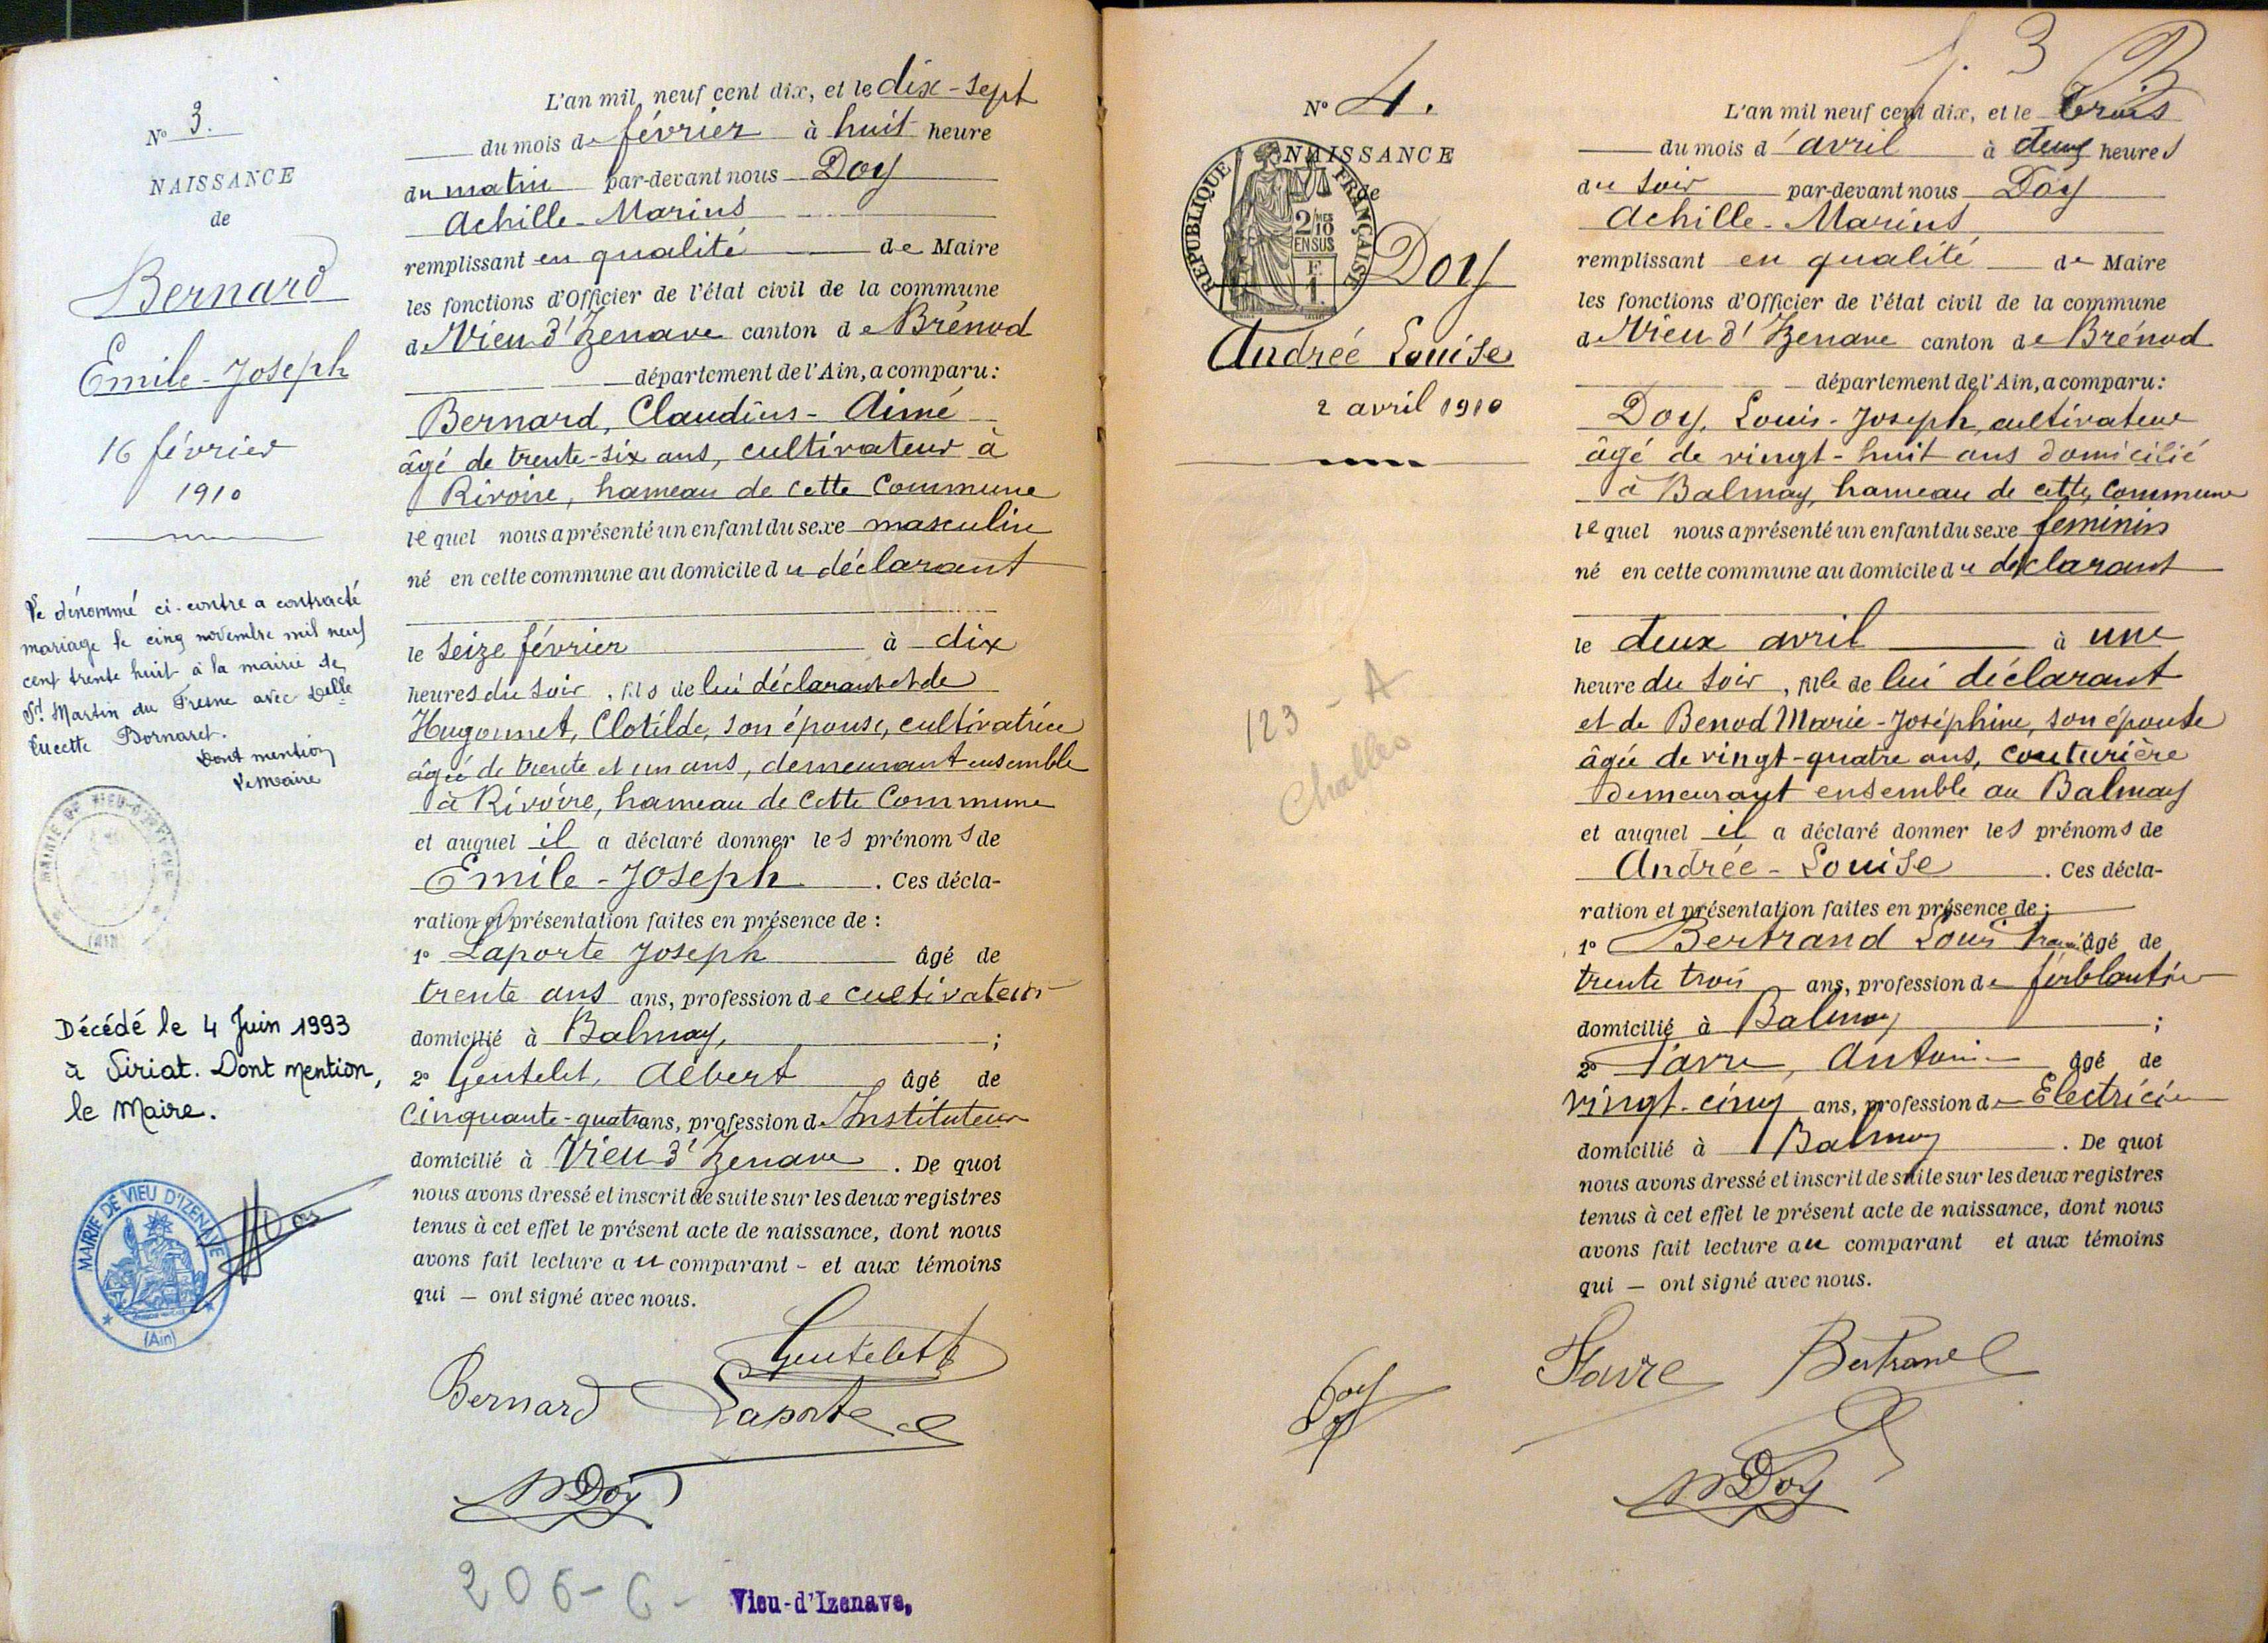 N° 3.
NAISSANCE
de
Bernard
Emile-Joseph
16 février
1910
Le dénommé ci-contre a contracté
mariage le cinq novembre mil neuf
cent trente huit à la mairie de
St Martin du Fresne avec Delle
Lucette Bornaret.
Dont mention
Le Maire
MAIRIE DE VIEU-D'IZENAVE
(AIN)
Décédé le 4 Juin 1993
à Viriat. Dont mention,
le Maire.
MAIRIE DE VIEU D'IZENAVE
(Ain)
L'an mil neuf cent dix, et le dix-sept
du mois de février à huit heure
du matin par-devant nous Doy
Achille-Marius
remplissant en qualité de Maire
les fonctions d'Officier de l'état civil de la commune
de Vieu d'Izenave canton de Brénod
département de l'Ain, a comparu:
Bernard, Claudius-Aimé
âgé de trente-six ans, cultivateur à
Rivoire, hameau de cette commune
lequel nous a présenté un enfant du sexe masculin
né en cette commune au domicile du déclarant
le seize février à dix
heures du soir, fils de lui déclarant et de
Hugonnet, Clotilde, son épouse, cultivatrice
âgée de trente et un ans, demeurant ensemble
à Rivoire, hameau de cette commune
et auquel il a déclaré donner les prénoms de
Emile-Joseph. Ces décla-
ration et présentation faites en présence de :
1° Laporte Joseph âgé de
trente ans ans, profession de cultivateur
domicilié à Balmay, ;
2° Gentelet, Albert âgé de
cinquante-quatre ans, profession d'Instituteur
domicilié à Vieu d'Izenave. De quoi
nous avons dressé et inscrit de suite sur les deux registres
tenus à cet effet le présent acte de naissance, dont nous
avons fait lecture au comparant - et aux témoins
qui — ont signé avec nous.
Gentelet
Bernard Laporte
Doy
206-C-
Vieu-d'Izenave,
N° 4.
NAISSANCE
de
RÉPUBLIQUE FRANÇAISE
2/10 MES
EN SUS
F.
1.
Doy
Andrée Louise
2 avril 1910
123-A
Challes
3
L'an mil neuf cent dix, et le trois
du mois d'avril à deux heures
du soir par-devant nous Doy
Achille-Marius
remplissant en qualité de Maire
les fonctions d'Officier de l'état civil de la commune
de Vieu d'Izenave canton de Brénod
département de l'Ain, a comparu:
Doy, Louis-Joseph, cultivateur
âgé de vingt-huit ans domicilié
à Balmay, hameau de cette commune
lequel nous a présenté un enfant du sexe féminin
né en cette commune au domicile du déclarant
le deux avril à une
heure du soir, fille de lui déclarant
et de Benod Marie-Joséphine, son épouse
âgée de vingt-quatre ans, couturière
demeurant ensemble au Balmay
et auquel il a déclaré donner les prénoms de
Andrée-Louise. Ces décla-
ration et présentation faites en présence de :
1° Bertrand Louis âgé de
trente trois ans, profession de ferblantier
domicilié à Balmay ;
2° Favre, Antoine âgé de
vingt-cinq ans, profession d'Electricien
domicilié à Balmay. De quoi
nous avons dressé et inscrit de suite sur les deux registres
tenus à cet effet le présent acte de naissance, dont nous
avons fait lecture au comparant et aux témoins
qui — ont signé avec nous.
Favre Bertrand
Doy
Doy